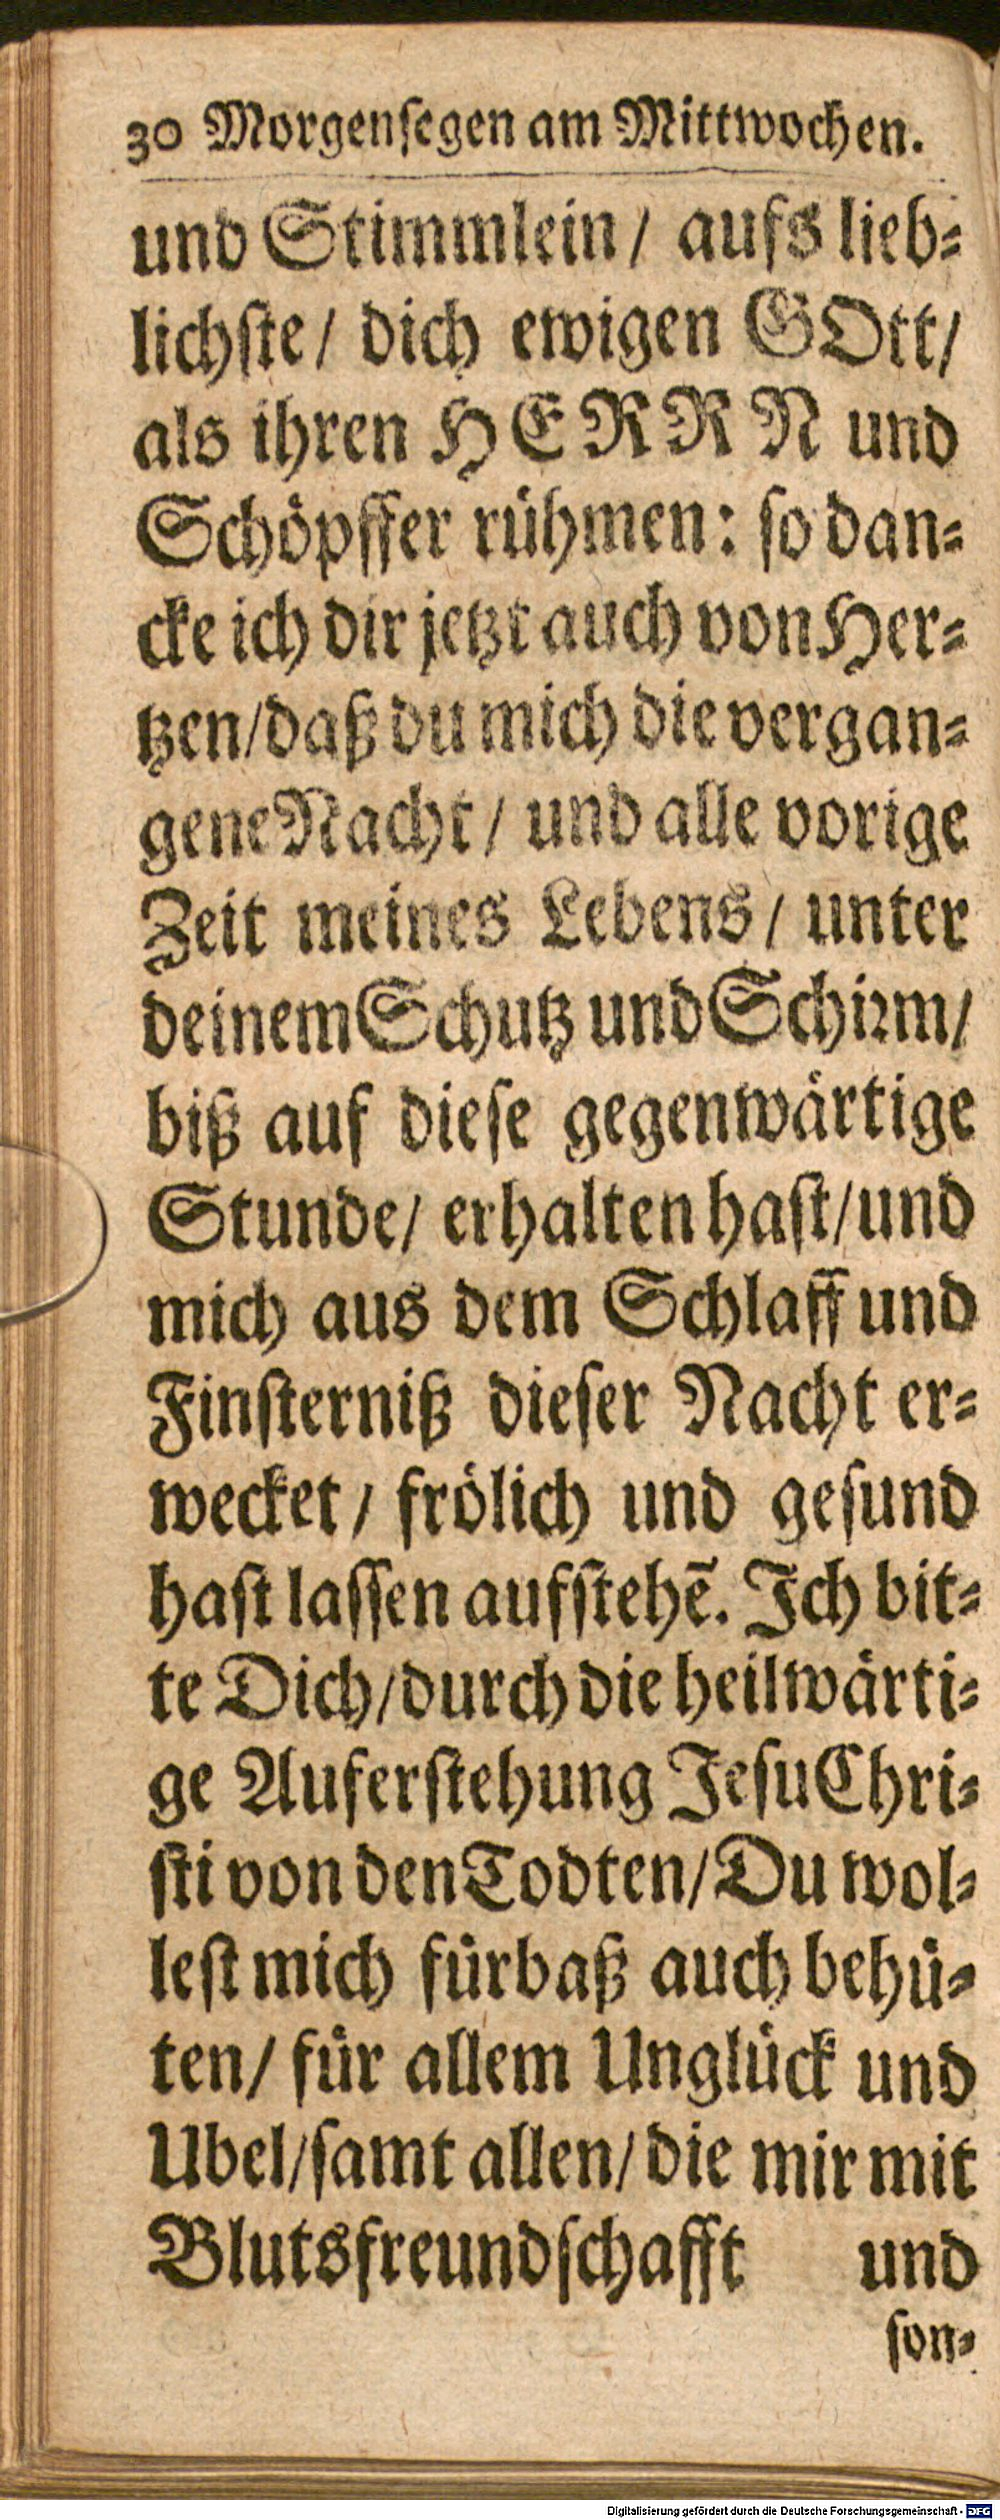 30 Morgenſegen am Mittwochen.
und Stimmlein/ aufs lieb⸗
lichſte/ dich ewigen GOtt/
als ihren HERRN und
Schöpffer rühmen: ſo dan⸗
cke ich dir jetzt auch von Her⸗
tzen/daß du mich die vergan⸗
gene Nacht/ und alle vorige
Zeit meines Lebens/ unter
deinem Schutz und Schiꝛm/
biß auf dieſe gegenwärtige
Stunde/ erhalten haſt/und
mich aus dem Schlaff und
Finſterniß dieſer Nacht er⸗
wecket/ frölich und geſund
haſt laſſen aufſtehē. Ich bit⸗
te Dich/durch die heilwärti⸗
ge Auferſtehung Jeſu Chri⸗
ſti von den Todten/Du wol⸗
leſt mich fürbaß auch behü⸗
ten/ für allem Unglück und
Ubel/ſamt allen/die mir mit
Blutsfreundſchafft und
ſon⸗
Digitalisierung gefördert durch die Deutsche Forschungsgemeinschaft - DFG